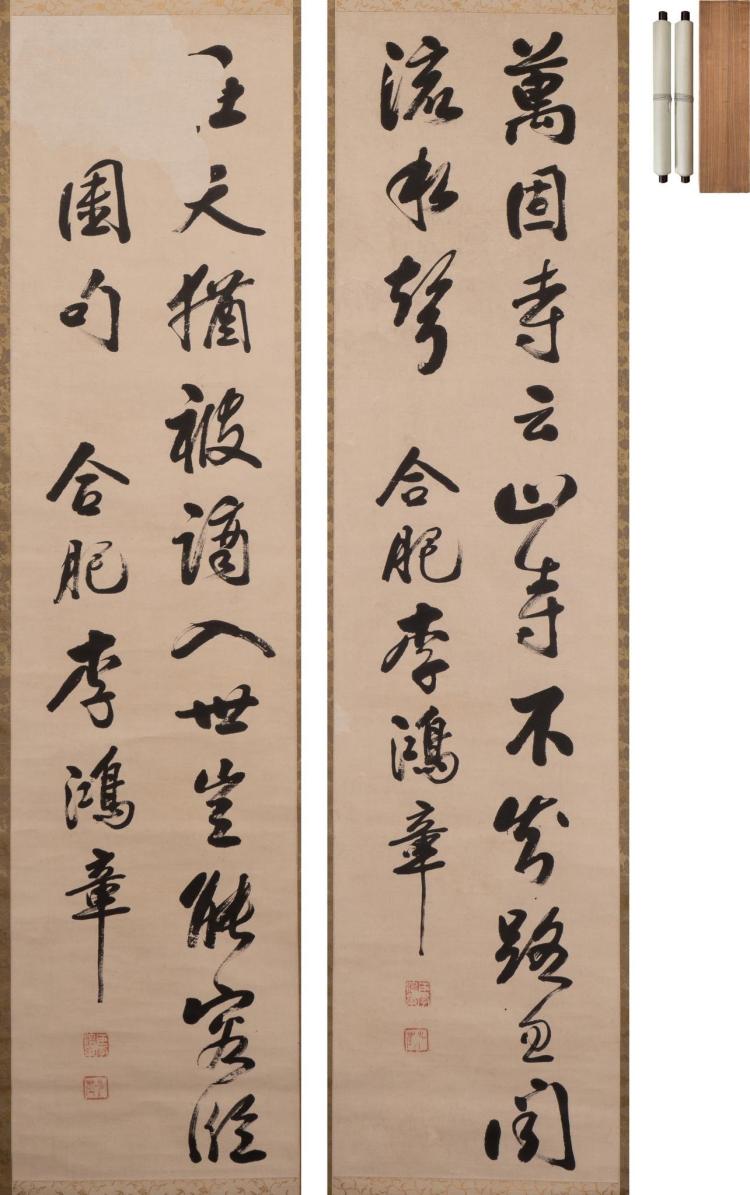 萬固寺云山寺不知路忽聞
流聲
合肥李鴻章
在天猶被謫入世豈能容隨
園句
合肥李鴻章